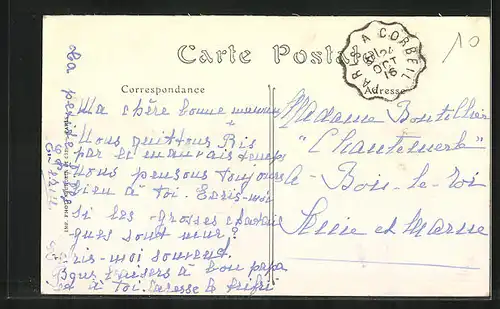 Carte Postale
Correspondance
Adresse
PARIS A CORBEIL
24
OCT
16
10
Ma chère bonne maman
Nous quittons Ris
par ce mauvais temps
nous pensons toujours
bien à toi. Ecris-moi
si les grosses chatai
gnes sont mûr?
Ecris-moi souvent.
Bons baisers à bon papa
et à toi. Caresse le frifri
La petite
Madame Bouteiller
"Chantemerle"
à Bois-le-Roi
Seine et Marne